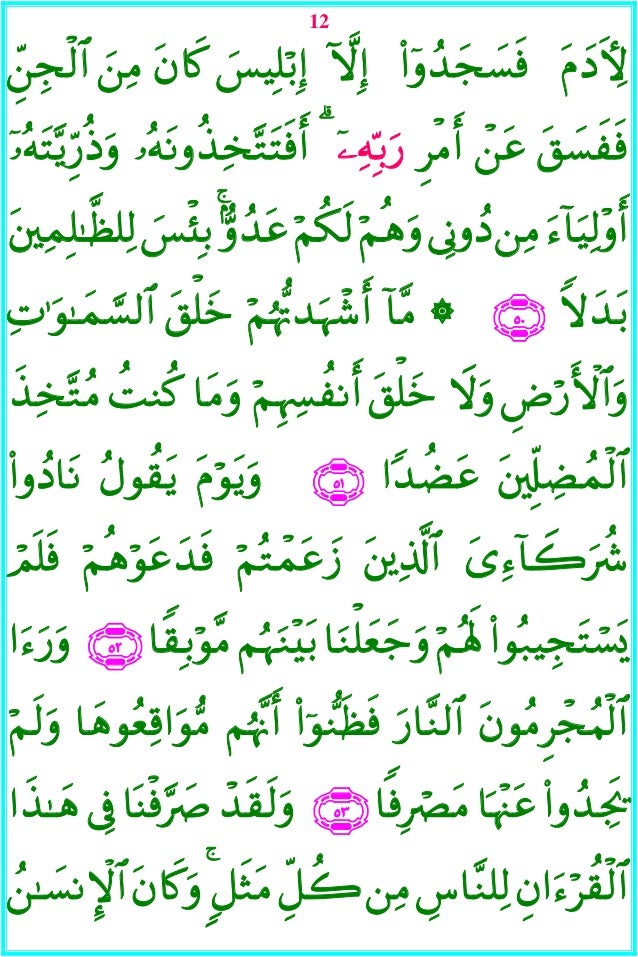 12
لِأٓدَمَ فَسَجَدُوٓا۟ إِلَّآ إِبْلِيسَ كَانَ مِنَ ٱلْجِنِّ
فَفَسَقَ عَنْ أَمْرِ رَبِّهِۦٓ ۗ أَفَتَتَّخِذُونَهُۥ وَذُرِّيَّتَهُۥٓ
أَوْلِيَآءَ مِن دُونِى وَهُمْ لَكُمْ عَدُوٌّۢ ۚ بِئْسَ لِلظَّـٰلِمِينَ
بَدَلًا ٥٠ ۞ مَّآ أَشْهَدتُّهُمْ خَلْقَ ٱلسَّمَـٰوَٰتِ
وَٱلْأَرْضِ وَلَا خَلْقَ أَنفُسِهِمْ وَمَا كُنتُ مُتَّخِذَ
ٱلْمُضِلِّينَ عَضُدًا ٥١ وَيَوْمَ يَقُولُ نَادُوا۟
شُرَكَآءِىَ ٱلَّذِينَ زَعَمْتُمْ فَدَعَوْهُمْ فَلَمْ
يَسْتَجِيبُوا۟ لَهُمْ وَجَعَلْنَا بَيْنَهُم مَّوْبِقًا ٥٢ وَرَءَا
ٱلْمُجْرِمُونَ ٱلنَّارَ فَظَنُّوٓا۟ أَنَّهُم مُّوَاقِعُوهَا وَلَمْ
يَجِدُوا۟ عَنْهَا مَصْرِفًا ٥٣ وَلَقَدْ صَرَّفْنَا فِى هَـٰذَا
ٱلْقُرْءَانِ لِلنَّاسِ مِن كُلِّ مَثَلٍ ۚ وَكَانَ ٱلْإِنسَـٰنُ